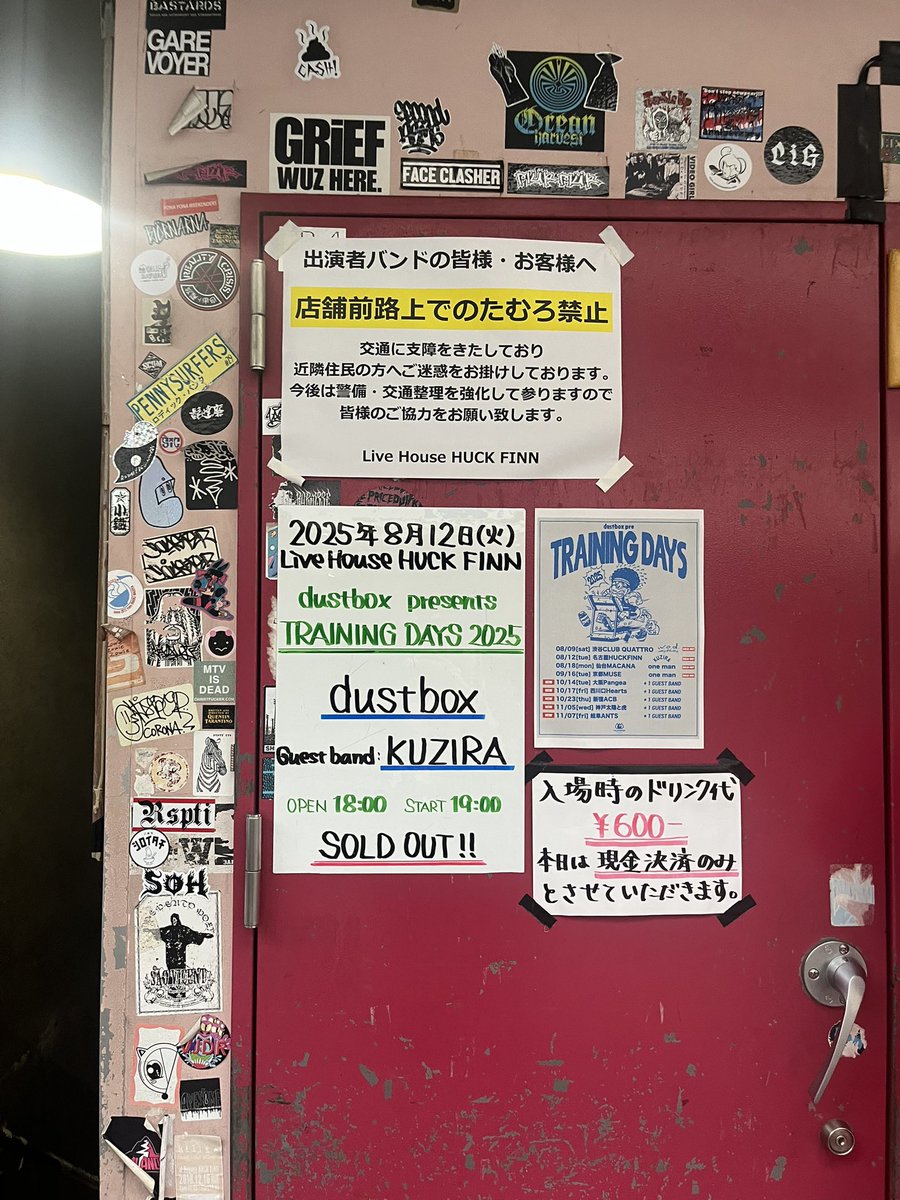 BASTARDS
GARE
VOYER
CASH!
GRiEF
WUZ HERE.
FACE CLASHER
Ocean
harvest
VIDEO GIRL
PiG
REALITY
CRISIS
PENNYSURFERS
ロディック・バンク
小鐵
MTV
IS
DEAD
QUENTIN
TARANTINO
CORONA
Rspti
SOH
SÃO VICENT
出演者バンドの皆様・お客様へ
店舗前路上でのたむろ禁止
交通に支障をきたしており
近隣住民の方へご迷惑をお掛けしております。
今後は警備・交通整理を強化して参りますので
皆様のご協力をお願い致します。
Live House HUCK FINN
2025年8月12日(火)
Live House HUCK FINN
dustbox presents
TRAINING DAYS 2025
dustbox
Guest band: KUZIRA
OPEN 18:00 START 19:00
SOLD OUT!!
dustbox pre
TRAINING DAYS
2025
08/09[sat] 渋谷CLUB QUATTRO
08/12[tue] 名古屋HUCKFINN KUZIRA
08/18[mon] 仙台MACANA one man
09/16[tue] 京都MUSE one man
10/14[tue] 大阪Pangea +1 GUEST BAND
10/17[fri] 西川口Hearts +1 GUEST BAND
10/23[thu] 新宿ACB +1 GUEST BAND
11/05[wed] 神戸太陽と虎 +1 GUEST BAND
11/07[fri] 岐阜ANTS +1 GUEST BAND
入場時のドリンク代
¥600-
本日は現金決済のみ
とさせていただきます。